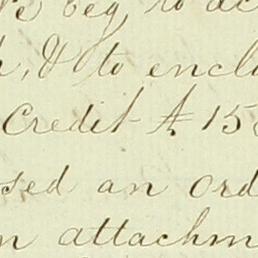 beg, to ac
h, & to enclo
Credit £ 15
sed an ord
n attachm